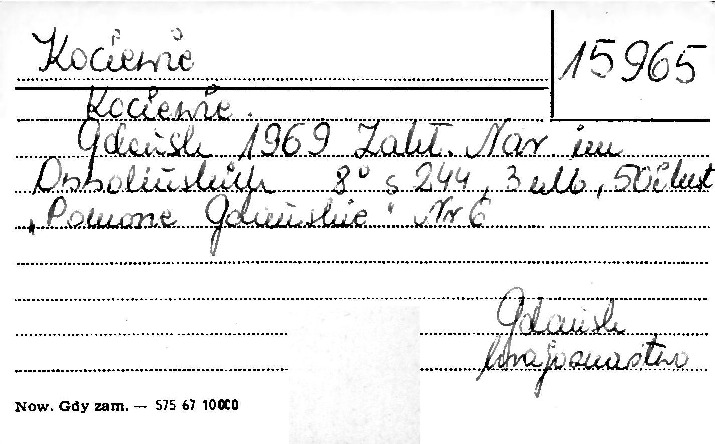 Kociewie
15965
Kociewie.
Gdańsk 1969 Zakł. Nar im
Ossolińskich 8° s 244, 3 nlb, 50 ilust
"Pomorze Gdańskie" Nr 6
Gdańsk
krajoznastwo
Now. Gdy zam. — 575 67 10000